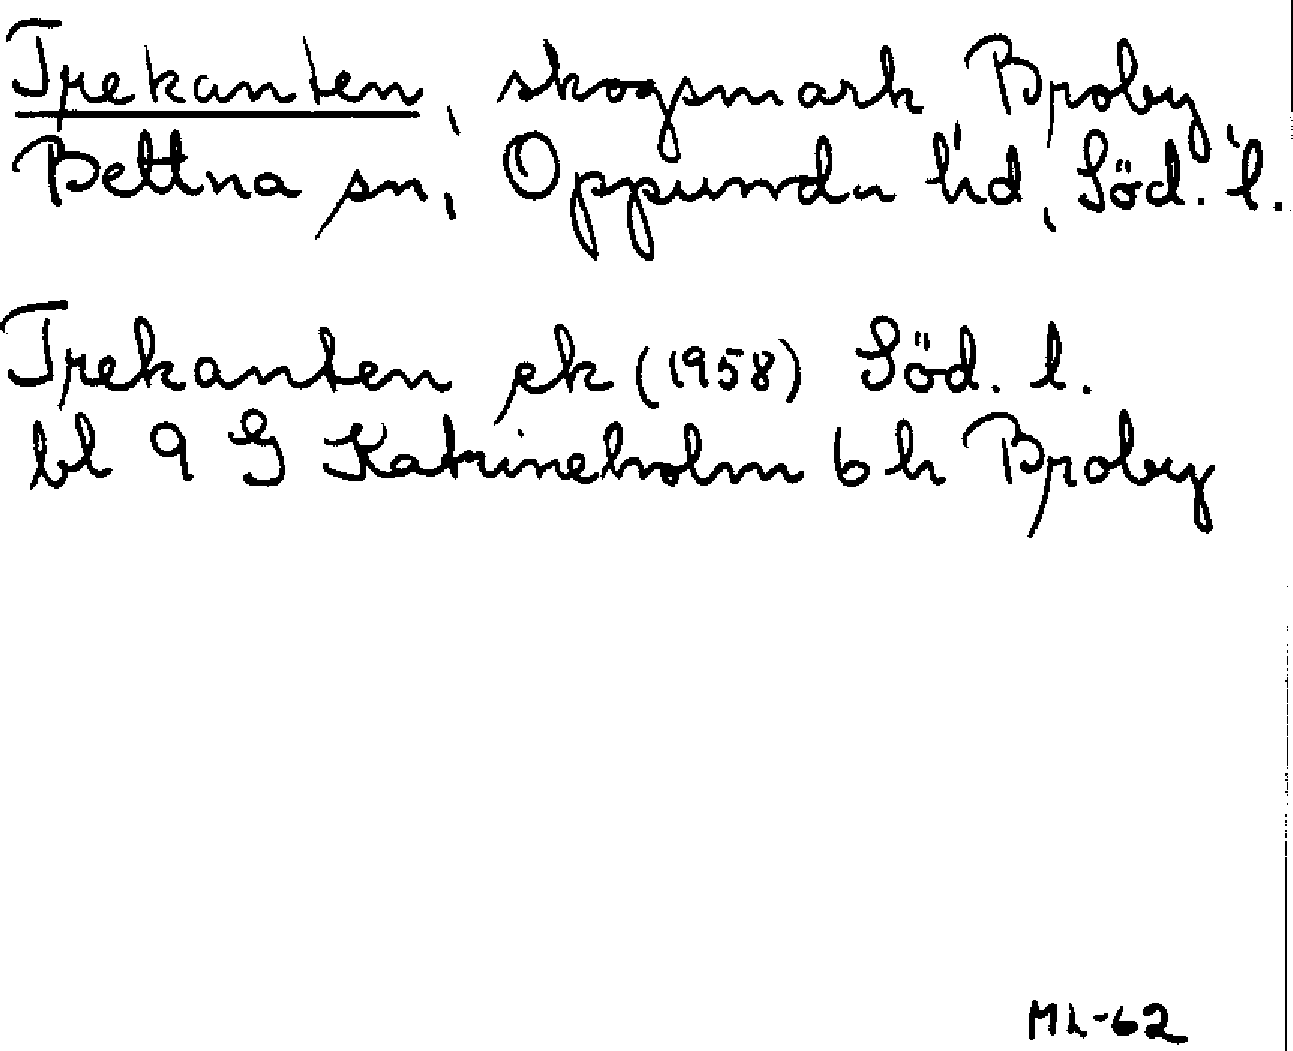 Trekanten, skogsmark Broby,
Bettna sn, Oppunda hd, Söd. l.
Trekanten ek (1958) Söd. l.
bl 9 G Katrineholm 6 h Broby
ML-62